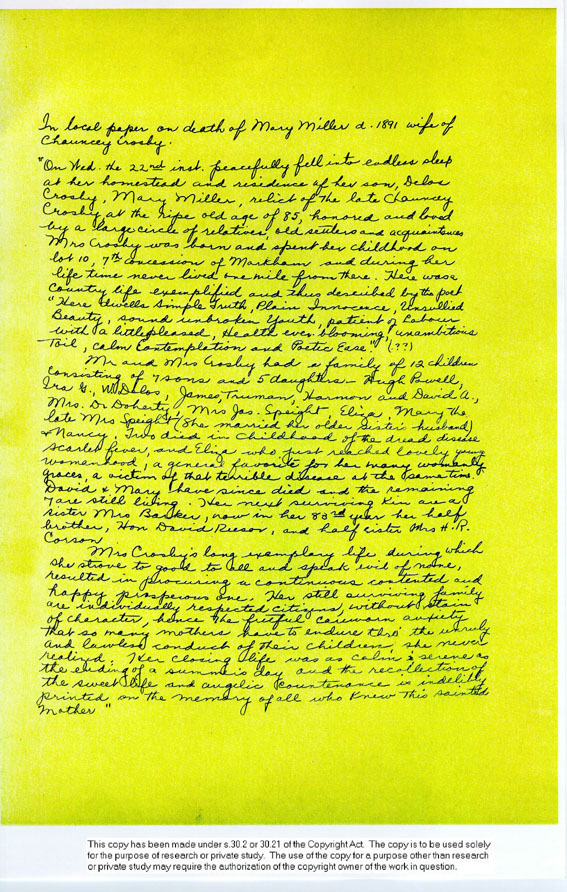 In local paper on death of Mary Miller d. 1891 wife of
Chauncey Crosby.
"On Wed. the 22nd inst. peacefully fell into endless sleep
at her homestead and residence of her son, Delos
Crosby, Mary Miller, relict of the late Chauncey
Crosby at the ripe old age of 85, honored and loved
by a large circle of relatives, old settlers and acquaintances
Mrs Crosby was born and spent her childhood on
lot 10, 7th concession of Markham and during her
life time never lived one mile from there. Here was a
Country life exemplified and thus described by the poet
"Here dwells Simple Truth, Plain Innocence, Unsullied
Beauty, sound unbroken Youth, patient of Labour
with a little pleased, Health ever blooming, unambitious
Toil, calm Contemplation and Poetic Ease." (??)
Mr and Mrs Crosby had a family of 12 children
consisting of 7 sons and 5 daughters - Hugh Powell,
Ira G., W. Delos, James, Truman, Harmon and David A.,
Mrs. Dr Doherty, Mrs Jas. Speight, Eliza, Mary the
late Mrs Speight (She married her older sister's husband)
& Nancy. Two died in Childhood of the dread disease
scarlet fever, and Eliza who just reached lovely young
womanhood, a general favorite for her many womanly
graces, a victim of that terrible disease at the same time.
David & Mary have since died and the remaining
7 are still living. Her next surviving Kin are a
sister Mrs Barker, now in her 83rd year her half
brother, Hon David Reesor, and half sister Mrs H. R.
Corson
Mrs Crosby's long exemplary life during which
she strove to good to all and speak evil of none,
resulted in procuring a continuous contented and
happy prosperous one. Her still surviving family
are individually respected citizens, without stain
of character, hence the fretful careworn anxiety
that so many mothers have to endure thro' the unruly
and lawless conduct of their children, she never
realized. Her closing life was as calm & serene as
the ending of a summer's day and the recollection of
the sweet life and angelic countenance is indelibly
printed on the memory of all who Knew this sainted
Mother"
This copy has been made under s.30.2 or 30.21 of the Copyright Act. The copy is to be used solely
for the purpose of research or private study. The use of the copy for a purpose other than research
or private study may require the authorization of the copyright owner of the work in question.